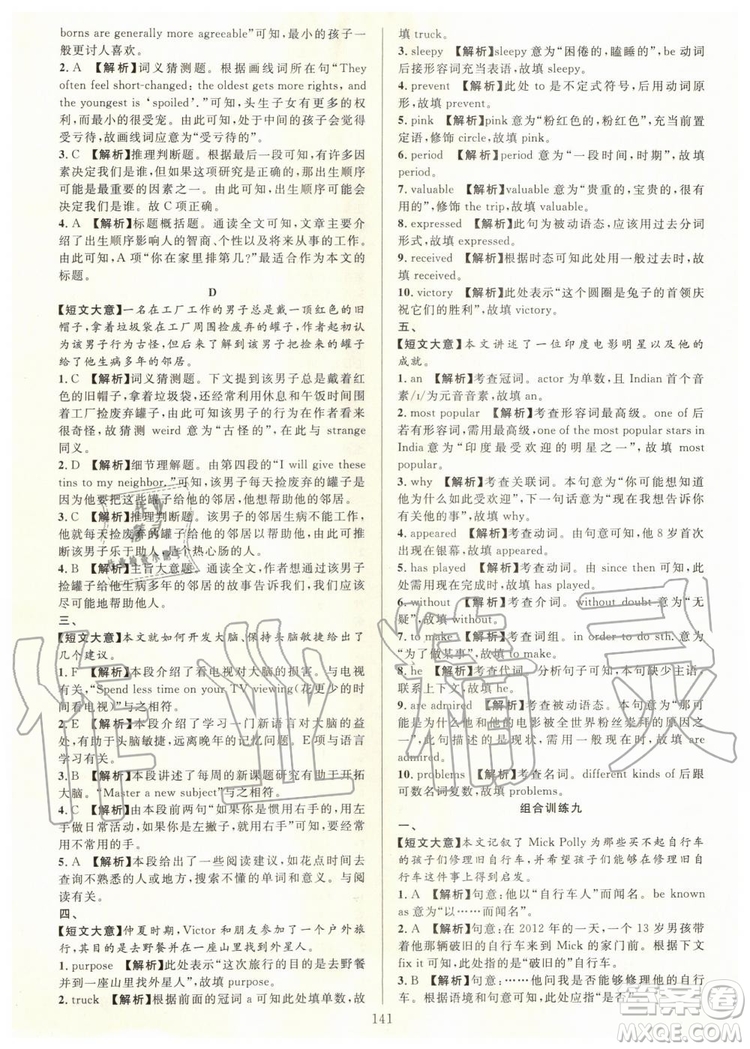 borns are generally more agreeable”可知，最小的孩子一
般更讨人喜欢。
2. A 【解析】词义猜测题。根据画线词所在句“They
often feel short-changed: the oldest gets more rights, and
the youngest is ‘spoiled’.”可知，头生子女有更多的权
利，而最小的很受宠爱，这使得处于中间的孩子会觉得
受亏待，故画线词应意为“受亏待的”。
3. C 【解析】推理判断题。根据最后一段可知，有许多因
素决定我们是谁，但因为这项研究是正确的，出生顺序
可能是最有趣的因素之一。由此可知，出生顺序可能会
决定我们是谁，故 C 项正确。
4. A 【解析】标题概括题。通读全文可知，文章主要介
绍了出生顺序影响人的智商、个性以及将从事的工作。
由此可知，A 项“你在家里排第几？”最适合作为本文的
标题。
D
【短文大意】一名在工厂工作的男子总戴一顶红色的旧
帽子，拿着垃圾袋在工厂周围捡废弃的罐子，人们都认
为该男子行为古怪，后来发现他是为了把捡来的罐子给
他的生病多年的邻居。
1. C 【解析】词义猜测题。下文提到该男子总戴着红
色的旧帽子，拿着垃圾袋，利用休息和午饭时间围着
围着工厂捡废弃罐子，可知该男子的行为在人们看来
很奇怪，故猜测 weird 意为“古怪的”，与 strange
同义。
2. D 【解析】细节理解题。由第四段的“I will give these
tins to my neighbor.”可知，该男子每天捡废弃的罐子是
因为他要把这些罐子给他的邻居。
3. C 【解析】推理判断题。该男子的邻居生病不能工作，
他每天捡废弃的罐子给他的邻居以帮助他，由此推断出
该男子乐于助人，心地善良。
4. B 【解析】主旨大意题。通读全文可知，由该男子
捡罐子给他生病多年的邻居的故事告诉我们，我们应该
尽可能多地帮助他人。
三、
【短文大意】本文就如何开发大脑，保持头脑敏捷给出了
几个建议。
1. F 【解析】本段介绍了看电视对大脑的损害。与电视
有关，“Spend less time on your TV viewing(花更少的时
间看电视)”与之相符。
2. E 【解析】本段介绍了学习一门新语言对大脑的益
处，有助于头脑敏捷，远离晚年的记忆问题。E 项与语言
学习有关。
3. B 【解析】本段讲述了每周的新课题研究有助于开拓
大脑。“Master a new subject”与之相符。
4. D 【解析】由本段前两句“如果你是惯用右手的，试
着使用左手。如果你是左撇子，那就用右手”可知，本段
与惯用手有关。
5. A 【解析】本段介绍了一些阅读建议，如花点时间去
查阅不熟悉的人或地方，查找不知道的单词，可知本段与
阅读有关。
四、
【短文大意】仲夏时期，Victor 和朋友们参加了一个户外旅
行，其目的是去野餐并在一座山里找到外星人。
1. purpose 【解析】此处表示“这次旅行的目的是去野餐
并在一座山里找到外星人”，故填 purpose。
2. truck 【解析】根据前面的冠词 a 可知此处填单数，故
填 truck。
3. sleepy 【解析】sleepy 意为“困倦的，瞌睡的”，be 动词
后接形容词充当表语，故填 sleepy。
4. prevent 【解析】此处 to 是不定式符号，后加动词原
形，故填 prevent。
5. pink 【解析】pink 意为“粉红色的，粉色的”，充当前置
定语，修饰 circle，故填 pink。
6. period 【解析】period 意为“一段时间，时期”，故填
period。
7. valuable 【解析】valuable 意为“贵重的，宝贵的，很有
用的”，修饰 the trip，故填 valuable。
8. expressed 【解析】此句为被动语态，应该用过去分词
形式，故填 expressed。
9. received 【解析】根据时态可知此处用一般过去时，故
填 received。
10. victory 【解析】此处表示“这个圆圈是兔子的首领庆
祝它们的胜利”，故填 victory。
五、
【短文大意】本文讲述了一位印度电影明星以及他的
成就。
1. an 【解析】考查冠词。actor 为单数，且 Indian 首个音
素/ɪ/为元音，故填 an。
2. most popular 【解析】考查形容词最高级。one of 后
若有形容词用最高级，one of the most popular stars in
India 意为“印度最受欢迎的明星之一”，故填 most
popular。
3. why 【解析】考查关联词。根据句意“可能你想知道
他为什么如此受欢迎，以及他的成就。我现在想告诉你
有关他的情况”可知，故填 why。
4. appeared 【解析】考查动词。由句意可知，他 8 岁首次
出现在银幕，故填 appeared。
5. has played 【解析】考查时态。由 since then 可知，此
处需用现在完成时，故填 has played。
6. without 【解析】考查介词。without doubt 意为“无
疑”，故填 without。
7. to make 【解析】考查词组。in order to do sth. 意为
“为了做某事”，故填 to make。
8. he 【解析】考查代词。分析句子可知，本句缺少主语，
联系上下文可知，故填 he。
9. are admired 【解析】考查被动语态。由句意“这只是
他和他的电影被全世界粉丝崇拜的原因之
一”，此句描述的是现状，需用现在时，故填 are
admired。
10. problems 【解析】考查名词。different kinds of 后跟可
数名词复数，故填 problems。
组合训练九
一、
【短文大意】本文记叙了 Mick Polly 为那些买不起自行车
的孩子们修理旧自行车，并在孩子们修理旧自行车的故
事上得到了启发。
1. A 【解析】句意：他以“自行车人”而闻名。be known
as 意为“以……而闻名”。
2. C 【解析】句意：在 2012 年的一天，一个 13 岁男孩带
着他那辆破旧的自行车到 Mick 的家门前。根据下文
fix it 可知，此处指的是“破旧的”自行车。
3. B 【解析】句意：他问 Mick 是否能够修理他的自行
车。根据语境和句意可知，此处应指“是否”。
141